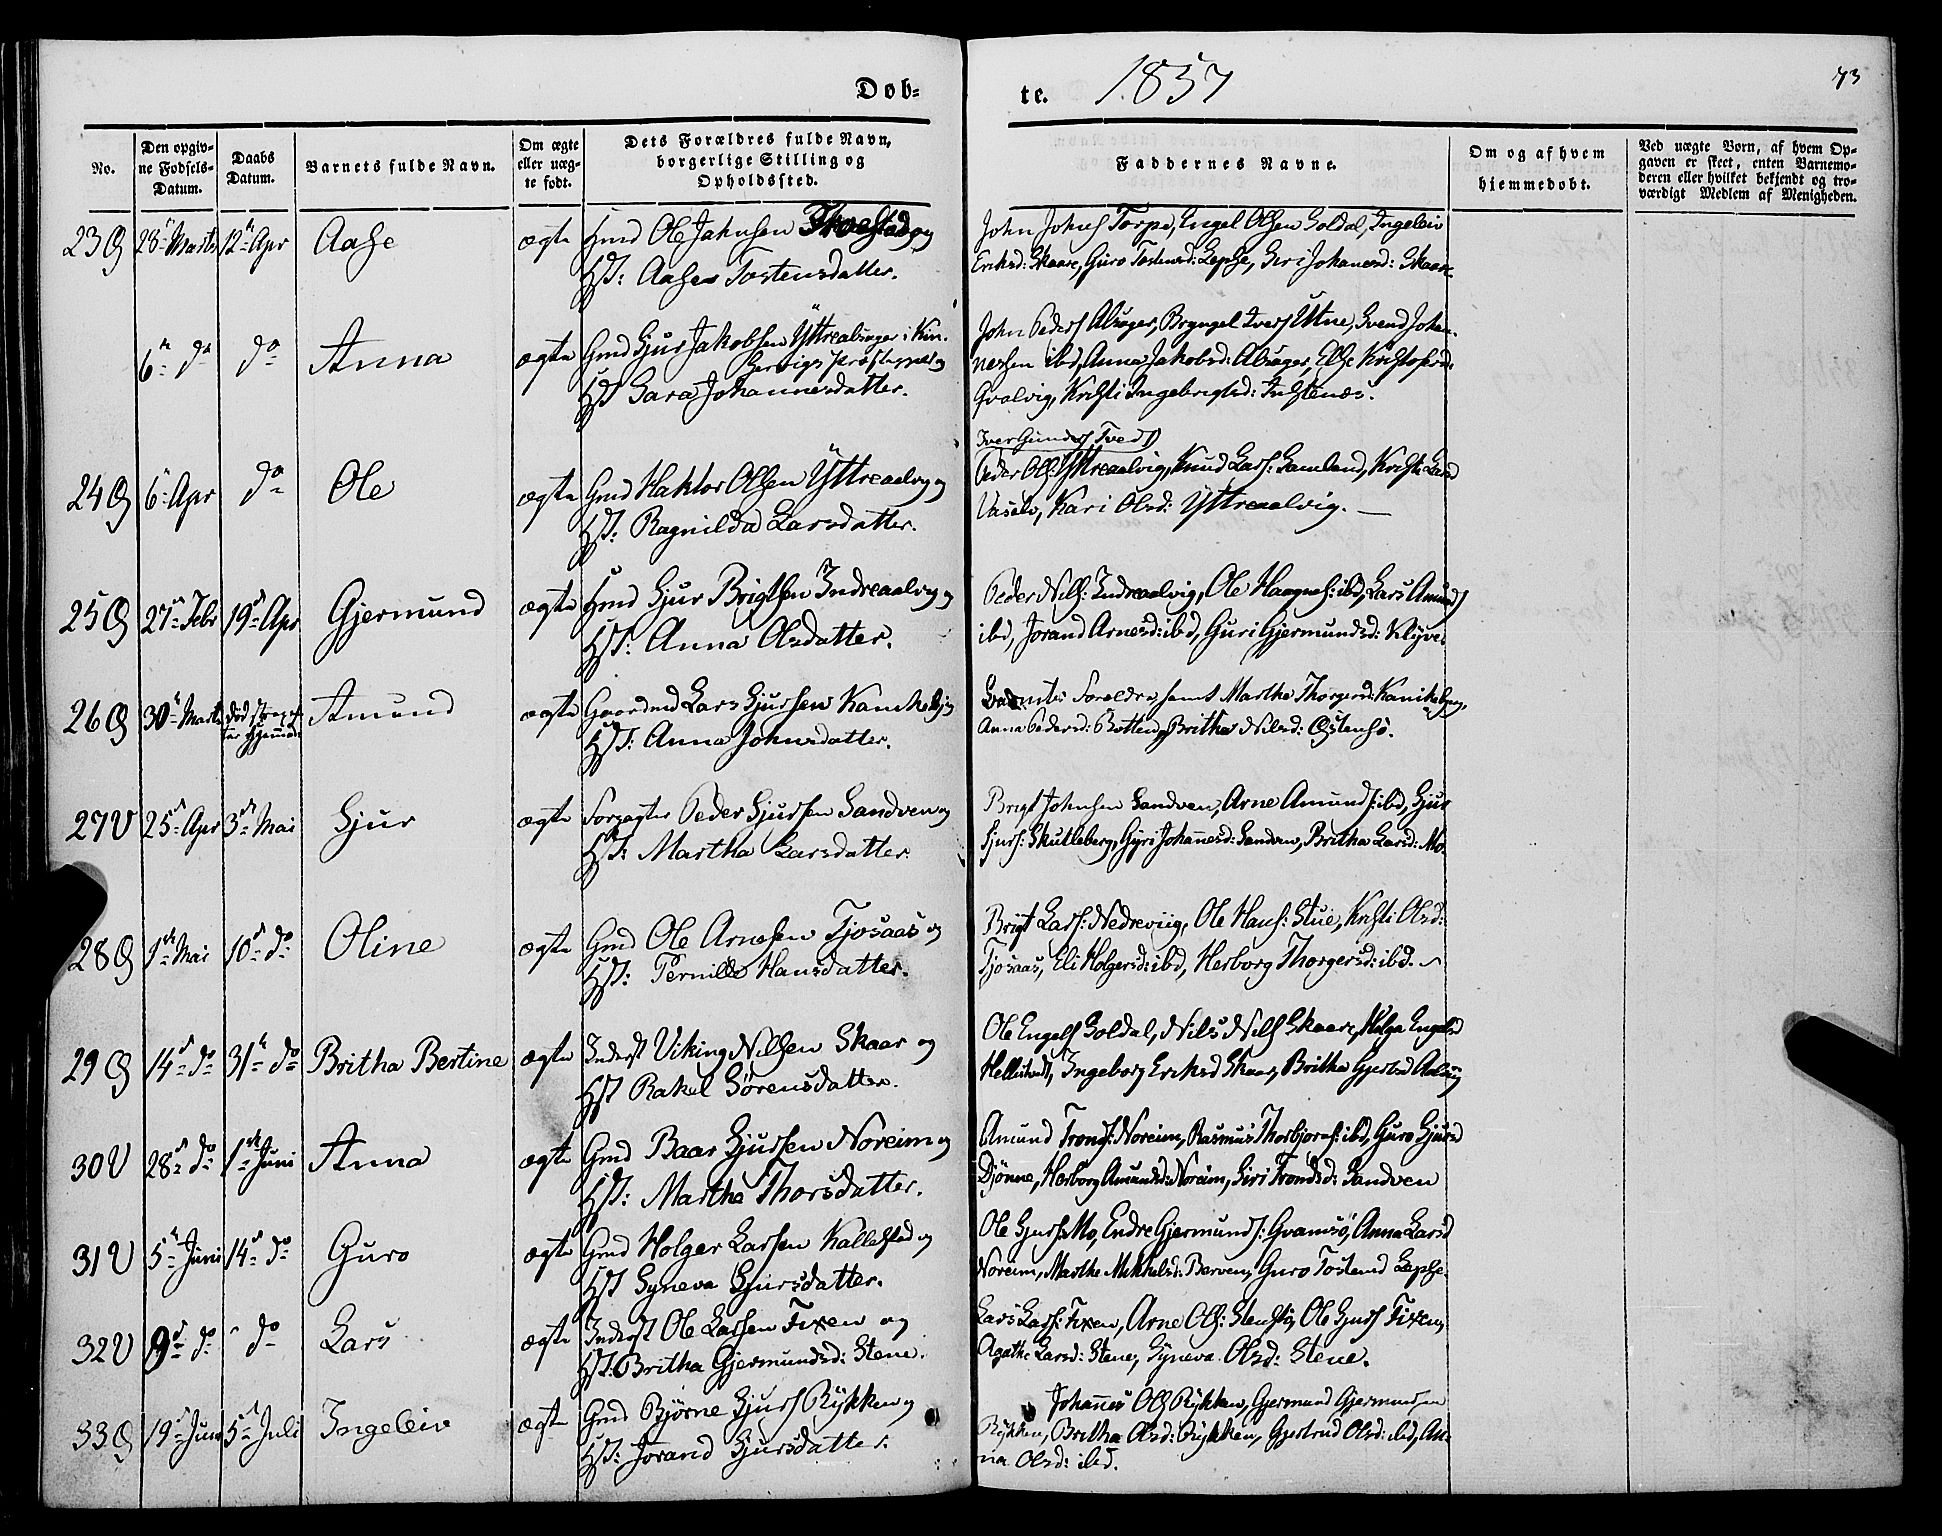 Døb-
te. 1857
73
No.
Den opgiv-
ne Fødsels-
Datum.
Daabs
Datum.
Barnets fulde Navn.
Om ægte
eller uæg-
te født.
Dets Forældres fulde Navn,
borgerlige Stilling og
Opholdssted.
Faddernes Navne.
Om og af hvem
hjemmedøbt.
Ved uægte Børn, af hvem Op-
gaven er skeet, enten Barnemo-
deren eller hvilket bekjendt og tro-
værdigt Medlem af Menigheden.
23 28 Marts 12 Apr Aase ægte Ole Johnsen og
Aase Tostensdatter.
John Johns Torpe, Engel Olsen Soldal, Ingeleiv
Eriksd: Skaare, Guro Tostensd: Lepse, Siri Johanesd: Skaare
6 do do Anna ægte Gmd Sjur Jakobsen Yttrealsager i Kin-
servigs Præstegjeld og
Hst Sara Johannesdatter.
John Peders Alsager, Bryngel Ivers Utne, Svend Johan-
nessen ibd, Anna Jakobsd: Alsager, Else Kristofersd:
Qvalvig, Kristi Ingebrigtsd: Instenæs.
24 6 Apr do Ole ægte Gmd Haktor Olsen Yttreaalvig og
Hst: Ragnilda Larsdatter.
Iver Gunders Tvedt
Peder Ols: Yttreaalvig, Knud Lars: Samland, Kristi Larsd
Kari Olsd: Yttreaalvig.
25 27 Febr 19 Apr Gjermund ægte Sjur Brigtsen Indreaalvig og
Hst: Anna Olsdatter.
Peder Nils: Indreaalvig, Ole Haagnes: ibd, Lars Amunds
ibd, Jorand Arnesd: ibd, Guri Gjermundsd: Klyve.
26 30 Marts død strax Amund ægte Gaardmd Lars Sjursen og
Hst: Anna Johnsdatter.
Forældre, samt Martha Thorgersd:
Anna Pedersd: Botten, Britha Nilsd: Østensø.
27V 25 Apr 3 Mai Sjur ægte Forpagter Peder Sjursen Sandven og
Hst: Martha Larsdatter.
Brigt Johnsen Sandven, Arne Amunds: ibd, Sjur
Sjurs: Skutleberg, Gyri Johannesd: Sandven, Britha Larsd: Mo.
28 1 Mai 10 do Oline ægte Gmd Ole Arnesen Tjosaas og
Hst: Pernille Hansdatter.
Brigt Lars: Nedreviig, Ole Hans: Stue, Kristi Olsd:
Tjosaas, Eli Holgersd: ibd, Herborg Thorgersd: ibd.
29 14 do 31 do Britha Bertine ægte Inderst Viking Nilsen Skaar og
Hst Rakel Sørensdatter.
Ole Engels Soldal, Nils Nils Skaare, Helga Engelsd
Ingeborg Eriksd Skaar, Britha
30V 28 do 1 Juni Anna ægte Gmd Baar Sjursen Noreim og
Hst: Martha Thorsdatter.
Amund Tronds: Noreim, Rasmus Thorbjørns: ibd, Guro Sjursd
Djønne, Herborg Amundsd: Noreim, Siri Trondsd: Sandven
31V 5 Juni 14 do Guro ægte Gmd Holger Larsen Kallestad og
Hst Syneva Sjursdatter.
Ole Sjurs: Mo, Endre Gjermunds: Qvamsø, Anna Larsd
Noreim, Martha Mikkelsd: Berven, Guro Tostensd Lepse.
32V 9 do do Lars ægte Inderst Ole Larsen Fixen og
Hst: Britha Gjermundsd: Stene.
Lars Lars: Fixen, Arne Ols: Ole Sjurs Fixen,
Agatha Larsd: Stene, Syneva Olsd: Stene.
33 19 Juni 5 Juli Ingeleiv ægte Gmd Bjørne Sjurs Rykken og
Hst: Jorand Sjursdatter.
Johannes Ols Rykken, Gjermund Gjermundsen
Rykken, Britha Olsd: Rykken, Gjertrud Olsd: ibd, An-
na Olsd: ibd.